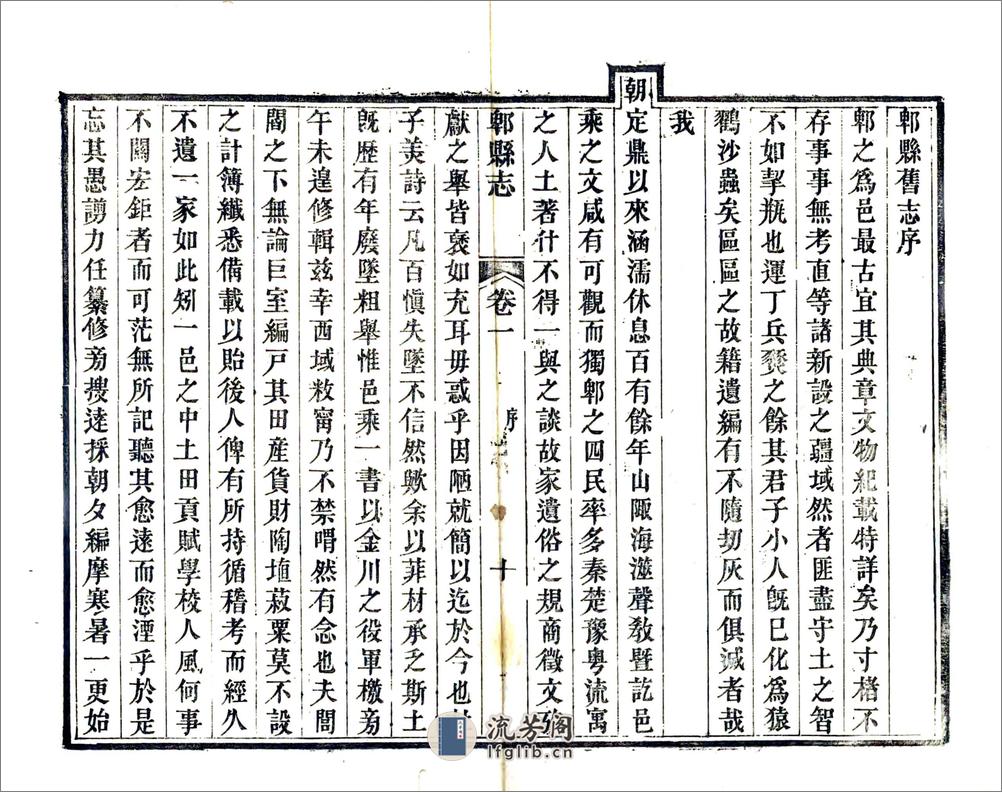 郫縣舊志序
郫之爲邑最古宜其典章文物紀載特詳矣乃寸楮不
存事事無考直等諸新設之疆域然者匪盡守土之智
不如挈瓶也運丁兵燹之餘其君子小人旣已化爲猿
鶴沙蟲矣區區之故籍遺編有不隨刧灰而俱滅者哉
我
朝定鼎以來涵濡休息百有餘年山陬海澨聲敎暨訖邑
乘之文咸有可觀而獨郫之四民率多秦楚豫粵流寓
之人土著什不得一與之談故家遺俗之規商徵文
郫縣志
卷一
十
獻之舉皆褎如充耳毋惑乎因陋就簡以迄於今也
子美詩云凡百愼失墜不信然歟余以菲材承乏斯土
旣歷有年廢墜粗舉惟邑乘一書以金川之役軍檄旁
午未遑修輯茲幸西域敉甯乃不禁喟然有念也夫閭
閻之下無論巨室編戸其田產貨財陶埴菽粟莫不設
之計簿纖悉備載以貽後人俾有所持循稽考而經久
不遺一家如此矧一邑之中土田貢賦學校人風何事
不關宏鉅者而可茫無所記聽其愈遠而愈湮乎於是
忘其愚謭力任纂修旁搜逵採朝夕編摩寒暑一更始
流芳阁
lfglib.cn